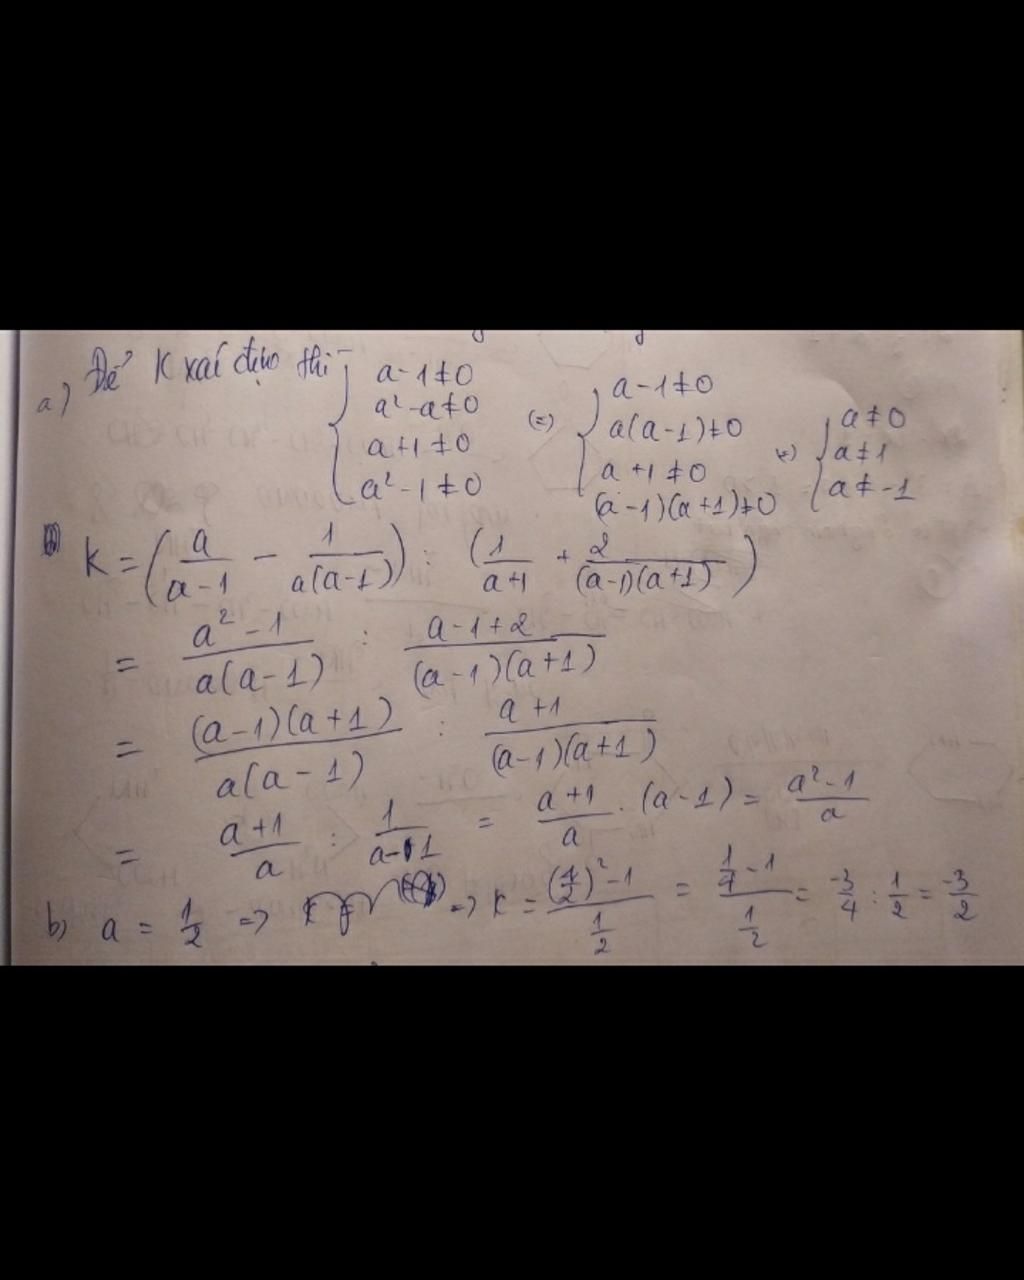 a) Để K xác định thì { a-1≠0 ; a²-a≠0 ; a+1≠0 ; a²-1≠0 (=) { a-1≠0 ; a(a-1)≠0 ; a+1≠0 ; (a-1)(a+1)≠0 (=) { a≠0 ; a≠1 ; a≠-1
K = (a/(a-1) - 1/(a(a-1))) : (1/(a+1) + 2/((a-1)(a+1)))
= (a²-1)/(a(a-1)) : (a-1+2)/((a-1)(a+1))
= ((a-1)(a+1))/(a(a-1)) : (a+1)/((a-1)(a+1))
= (a+1)/a : 1/(a-1) = (a+1)/a . (a-1) = (a²-1)/a
b) a = 1/2 => => K = ((1/2)²-1)/(1/2) = (1/4-1)/(1/2) = -3/4 : 1/2 = -3/2